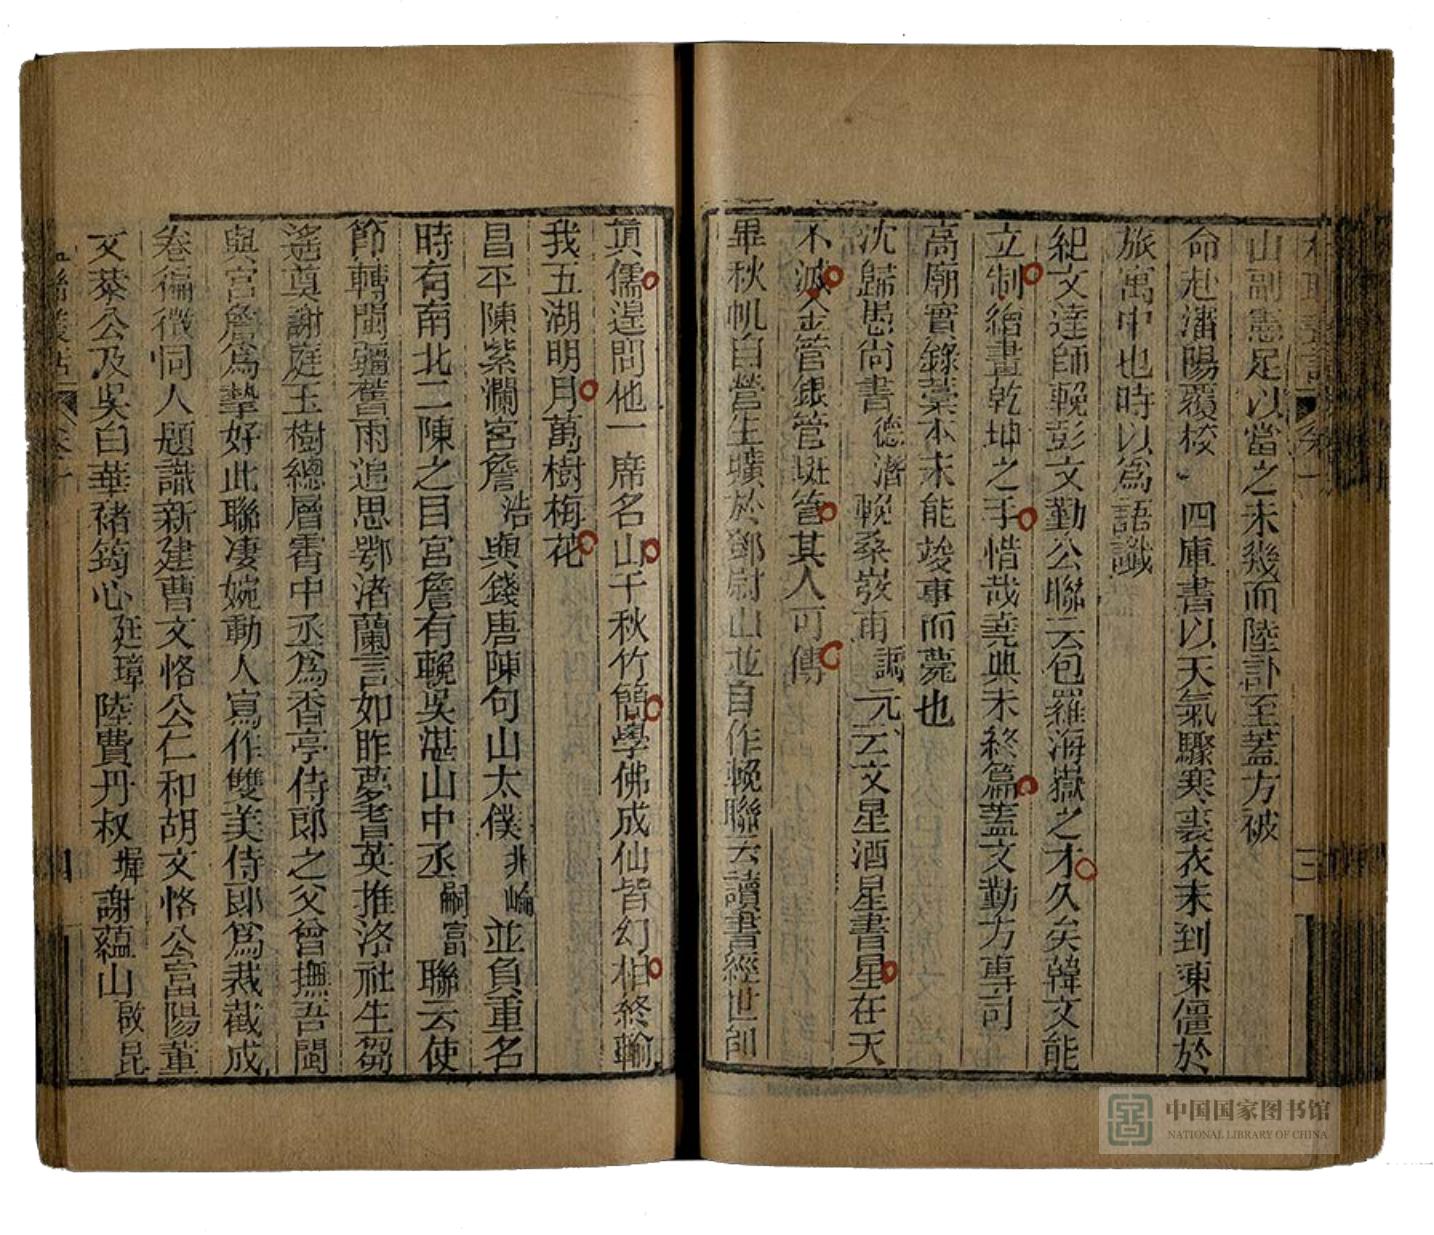 山副憲足以當之未幾而陸訃至蓋方被
命赴瀋陽覆校 四庫書以天氣驟寒裘衣未到凍僵於
旅寓中也時以爲語讖
紀文達師輓彭文勤公聯云包羅海嶽之才久矣韓文能
立制繪畫乾坤之手惜哉堯典未終篇蓋文勤方專司
高廟實錄藁本未能竣事而薨也
沈歸愚尚書德潛輓桑弢甫調元云文星酒星書星在天
不滅金管銀管斑管其人可傳
畢秋帆自營生壙於鄧尉山並自作輓聯云讀書經世卽
真儒遑問他一席名山千秋竹簡學佛成仙皆幻相終輸
我五湖明月萬樹梅花
昌平陳紫瀾宮詹浩與錢唐陳句山太僕兆崙並負重名
時有南北二陳之目宮詹有輓吳湛山中丞嗣富聯云使
節轉閩疆舊雨追思鄂渚蘭言如昨夢耆英推洛社生芻
遙奠謝庭玉樹總層霄中丞爲香亭侍郎之父曾撫吾閩
與宮詹爲摯好此聯凄婉動人寫作雙美侍郎爲裁截成
卷徧徵同人題識新建曹文恪公仁和胡文恪公富陽董
文恭公及吳白華褚筠心廷璋陸費丹叔墀謝蘊山啟昆
卷一
四
中国国家图书馆
NATIONAL LIBRARY OF CHINA